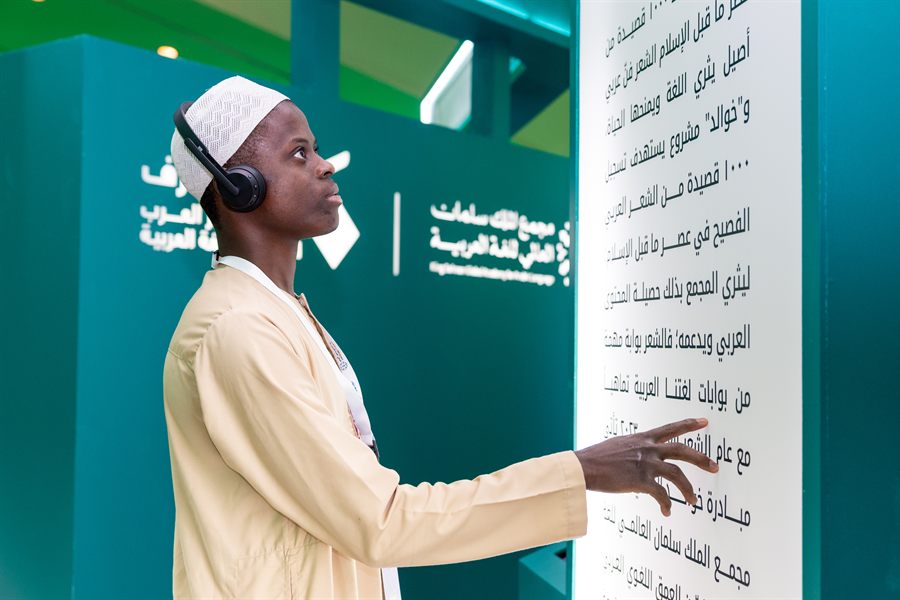 ١٠٠٠ قصيدة من
عصر ما قبل الإسلام الشعر فنٌ عربي
أصيل يثري اللغة ويمنحها الحياة،
و"خوالد" مشروع يستهدف تسجيل
١٠٠٠ قصيدة من الشعر العربي
الفصيح في عصر ما قبل الإسلام
ليثري المجمع بذلك حصيلة المحتوى
العربي ويدعمه؛ فالشعر بوابة مهمة
من بوابات لغتنا العربية تماهياً
مع عام الشعر ٢٠٢٣ تأتي
مبادرة
مجمع الملك سلمان العالمي للغة
العمق اللغوي العربي
مجمع الملك سلمان
العالمي للغة العربية
العرب
العربية